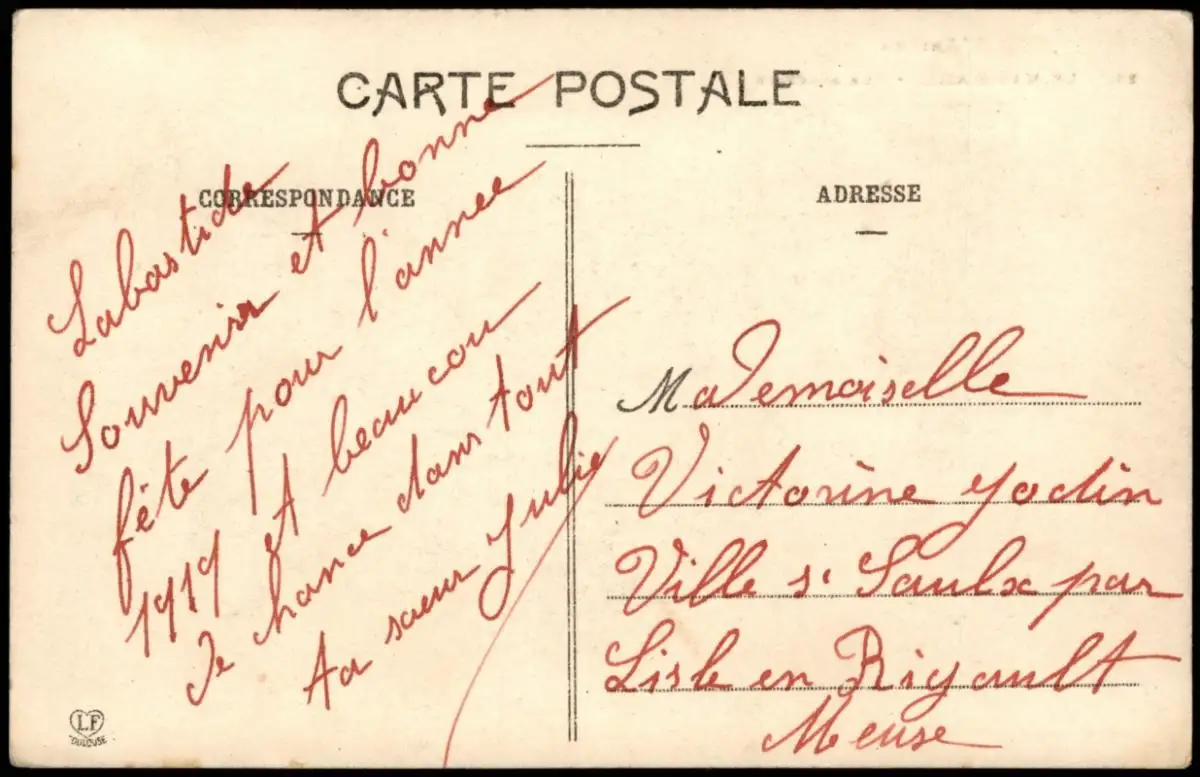 CARTE POSTALE
CORRESPONDANCE
Labastide
Souvenir et bonne
fête pour l'annee
1919 et beaucou
de chance dans tout
ta sœur Julie
ADRESSE
Mademoiselle
Victorine Jodin
Ville s' Saulx par
Lisle en Rigault
Meuse
LF
TOULOUSE